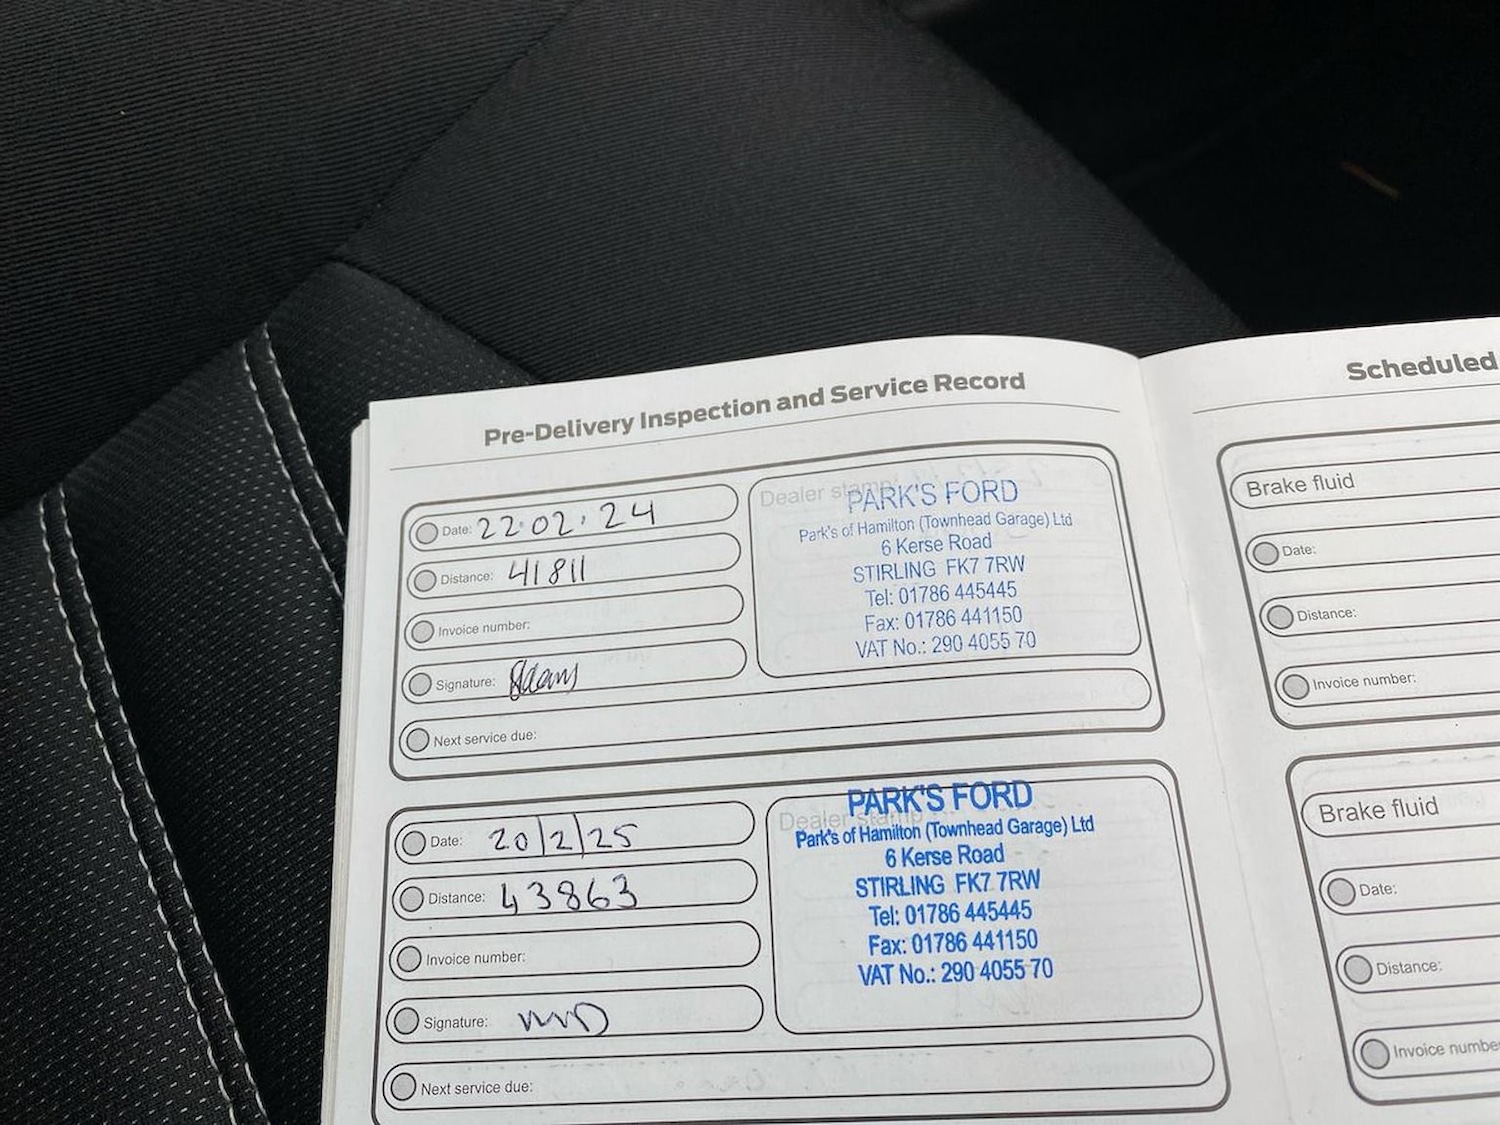 Pre-Delivery Inspection and Service Record
Date: 22.02.24
Distance: 41811
Invoice number:
Signature:
Next service due:
Dealer stamp
PARK'S FORD
Park's of Hamilton (Townhead Garage) Ltd
6 Kerse Road
STIRLING FK7 7RW
Tel: 01786 445445
Fax: 01786 441150
VAT No.: 290 4055 70
Date: 20/2/25
Distance: 43863
Invoice number:
Signature:
Next service due:
Dealer stamp
PARK'S FORD
Park's of Hamilton (Townhead Garage) Ltd
6 Kerse Road
STIRLING FK7 7RW
Tel: 01786 445445
Fax: 01786 441150
VAT No.: 290 4055 70
Scheduled
Brake fluid
Date:
Distance:
Invoice number:
Brake fluid
Date:
Distance:
Invoice numbe